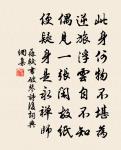 此身何物不堪為
逆旅浮雲自不知
偶見一張閒故紙
便疑身是永禪師
蘇軾書破琴詩後詞典
網集